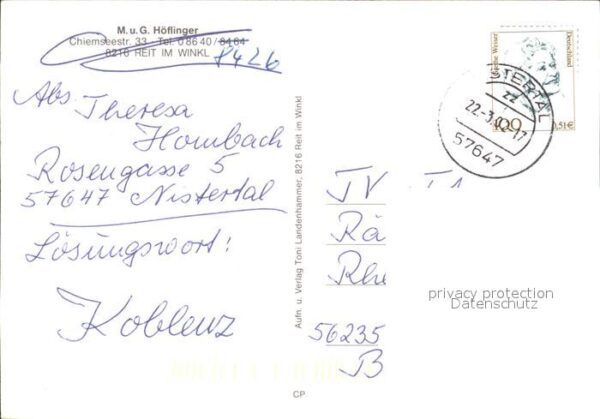 M. u. G. Höflinger
Chiemseestr. 33 - Tel. 0 86 40 / 84 64
8216 REIT IM WINKL 8426
Abs. Theresa
Hombach
Rosengasse 5
57647 Nistertal
Lösungswort:
Koblenz
Aufn. u. Verlag Toni Landenhammer, 8216 Reit im Winkl
CP
Deutschland
100 0,51€
NISTERTAL
zz
57647
TV
Rä
Rhe
56235
B
privacy protection
Datenschutz